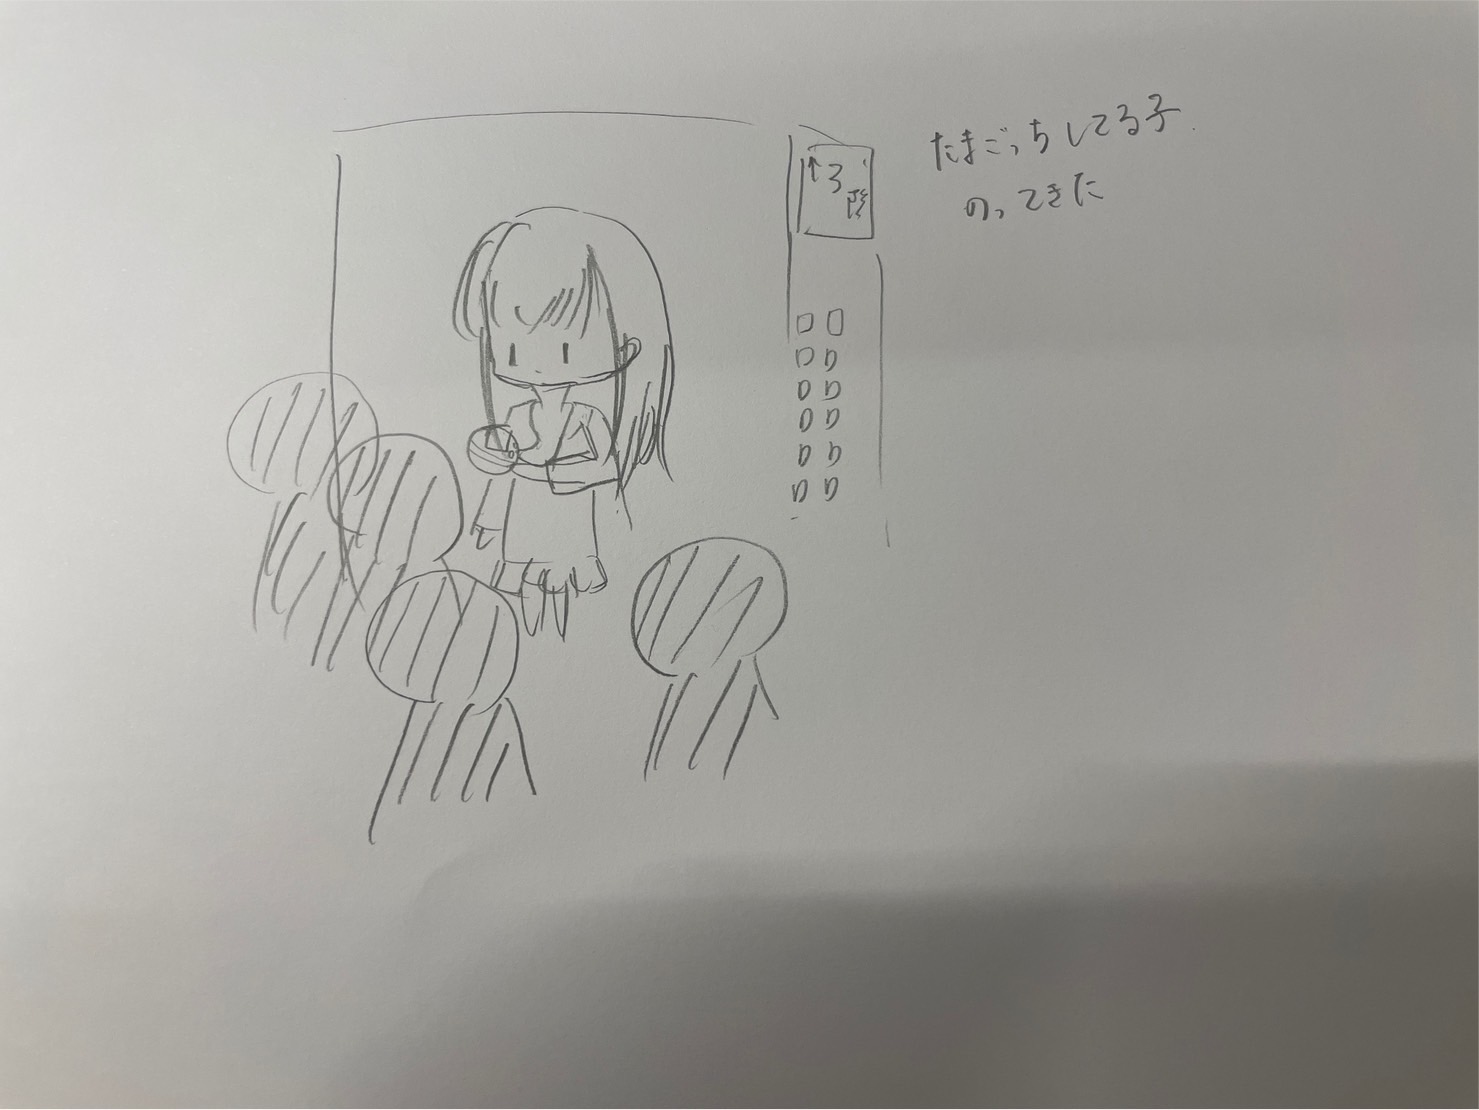 ↑3
階
たまごっちしてる子
のってきた